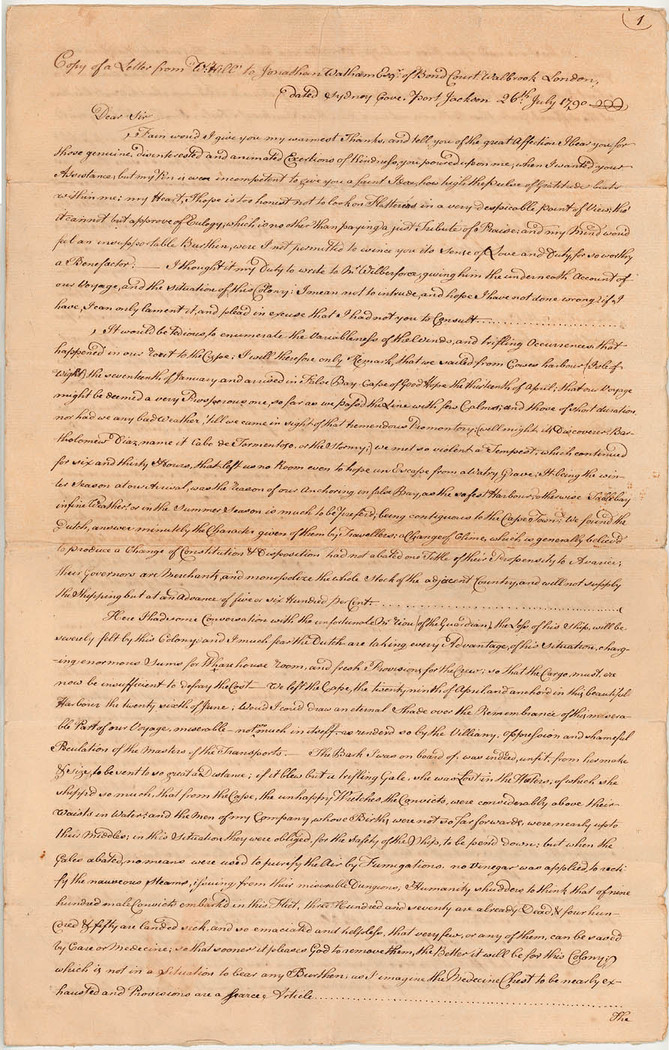 1
Copy of a Letter from W. Hill to Jonathan Watham Esqr. of Bond Court, Walbrook London,
dated Sydney Cove, Port Jackson 26th July 1790
Dear Sir
Fain would I give you my warmest Thanks, and tell you of the great Affection I bear you for
those genuine, disinterested and animated Exertions of Kindness, you poured upon me, when I wanted your
Assistance; but my Pen is even incompetent to give you a faint Idea, how high the Pulse of Gratitude beats
within me; my Heart, I hope is too honest not to look on Flatteries in a very despicable point of View; tho'
it cannot but approve of Eulogy, which is no other than paying a just Tribute of Praise; and my Mind would
feel an insupportable Burthen, were I not permitted to evince you its Sense of Love and Duty, for so worthy
a Benefactor. — I thought it my Duty to write to Mr. Wilberforce, giving him the underneath Account of
our Voyage, and the situation of this Colony; I mean not to intrude, and hope I have not done wrong; if I
have, I can only lament it, and plead in excuse that I had not you to Consult
It would be Tedious, to enumerate the Variableness of the Winds, and trifling Occurrences that
happened in our rout to the Cape; I will therefore only Remark, that we sailed from Cowes harbour (Isle of
Wight) the seventeenth of January and arrived in False Bay, Cape of Good Hope the thirteenth of April; that our Voyage
might be deemed a very Prosperous one, so far as we passed the Line with few Calms, and those of short duration
nor had we any bad Weather, 'till we came in sight of that tremendous Promontory, (well might it's Discoverer Bar-
tholomew Diaz, name it Cabo de Tormentoso, or the Stormy,) we met so violent a Tempest, which continued
for six and thirty Hours, that left us no Room even to hope an Escape from a Watry Grave. It being the win-
ter Season at our Arrival, was the reason of our Anchoring in False Bay, as the safest Harbour; otherwise Table bay
in fine Weather or in the Summer Season is much to be Prefer'd, being contiguous to the Cape Town. We found the
Dutch, answer minutely the Character given of them by Travellers; a Change of Clime, which is generally believ'd
to produce a Change of Constitution & Disposition had not abated one Tittle of their Propensity to Avarice;
their Governors are Merchants, and monopolize the whole Stock of the adjacent Country, and will not supply
the Shipping but at an Advance of five or six Hundred Per Cent.
Here I had some Conversation with the unfortunate Mr. Riou (of the Guardian) the Loss of his Ship, will be
severely felt by this Colony; and I much fear the Dutch are taking every Advantage, of his Situation, charg-
ing enormous Sums for Warehouse room, and fresh Provisions for the Crew; so that the Cargo, must, ere
now be insufficient to defray the Cost — We left the Cape, the twenty ninth of April and anchor'd in this beautiful
Harbour the twenty sixth of June; Wou'd I could draw an eternal Shade over the Remembrance of this misera-
ble Part of our Voyage, miserable — not so much in itself, as render'd so by the Villany, Oppression and shameful
Peculation of the Masters of the Transports. — The Bark I was on board of, was indeed, unfit, from her make
& size, to be sent to so great a Distance; if it blew but a trifling Gale, she was Lost in the Waters, of which she
shipp'd so much, that from the Cape, the unhappy Wretches the Convicts, were considerably above their
Waists in Water; and the Men of my Company, whose Births were not so far forwards, were nearly up to
their Middles; in this Situation they were obliged, for the Safety of the Ship, to be pen'd down; but when the
Gales abated, no means were used to purify the Air by Fumigations. no Vinegar was applied to recti-
fy the nauseous steams, issuing from their miserable Dungeons; Humanity shudders to think that of nine
hundred male Convicts embark'd in this Fleet, three Hundred and seventy are already Dead & four hun-
dred & fifty are landed sick, and so emaciated and helpless, that very few, or any of them, can be saved
by Care or Medecine; so that sooner it pleases God to remove them, the Better it will be for this Colony,
which is not in a Situation to bear any Burthen; as I imagine the Medecine Chest to be nearly ex-
hausted and Provisions are a scarce Article
The